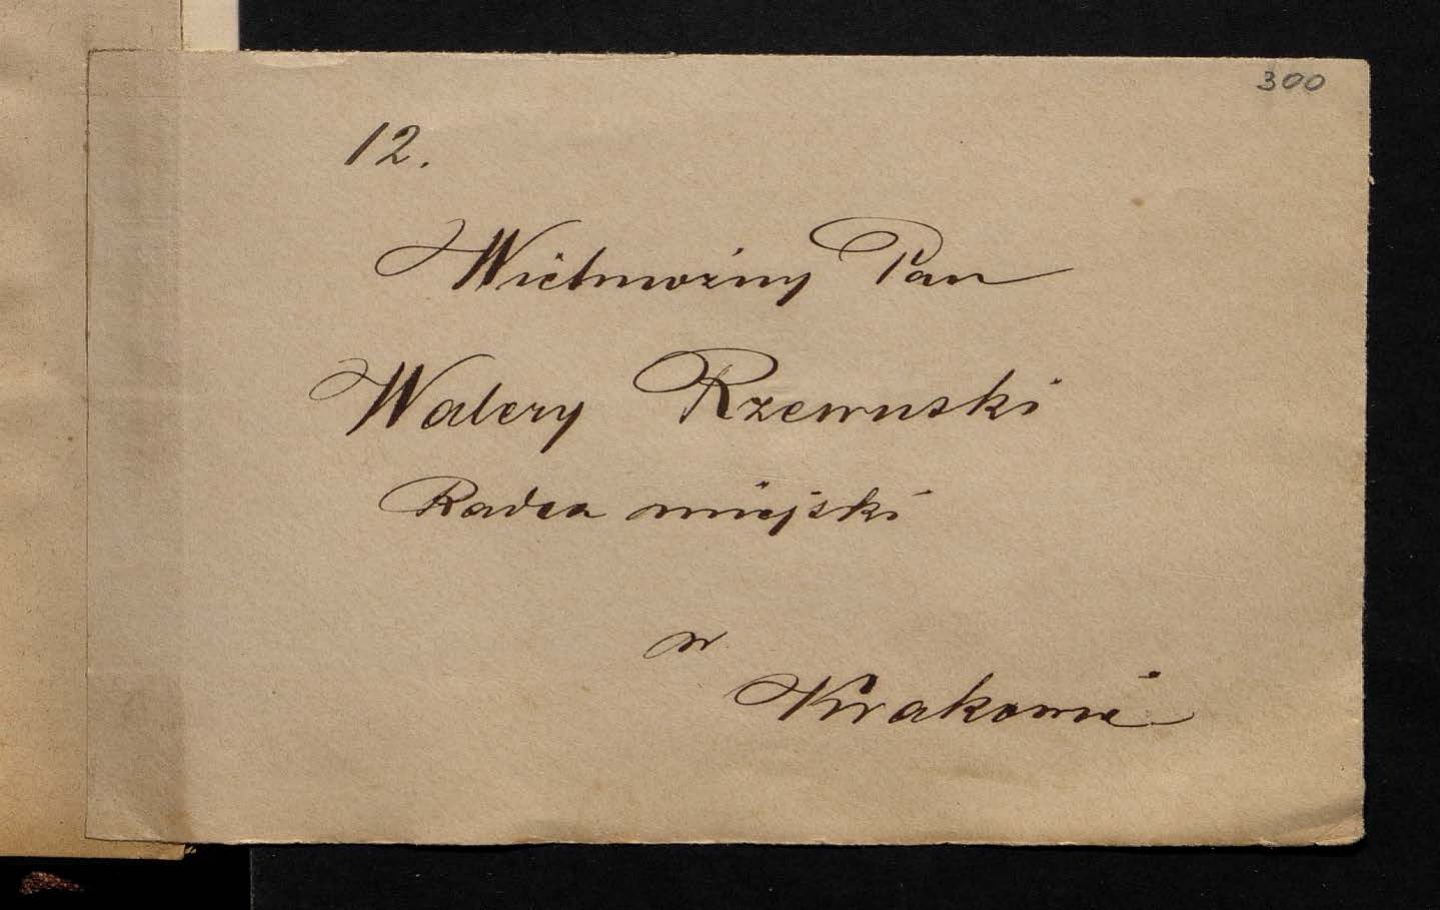 300
12.
Wielmożny Pan
Walery Rzewuski
Radca miejski
w
Krakowie